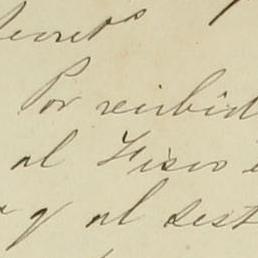 Secret.o
Por recibid
al Fisco e
q al sest